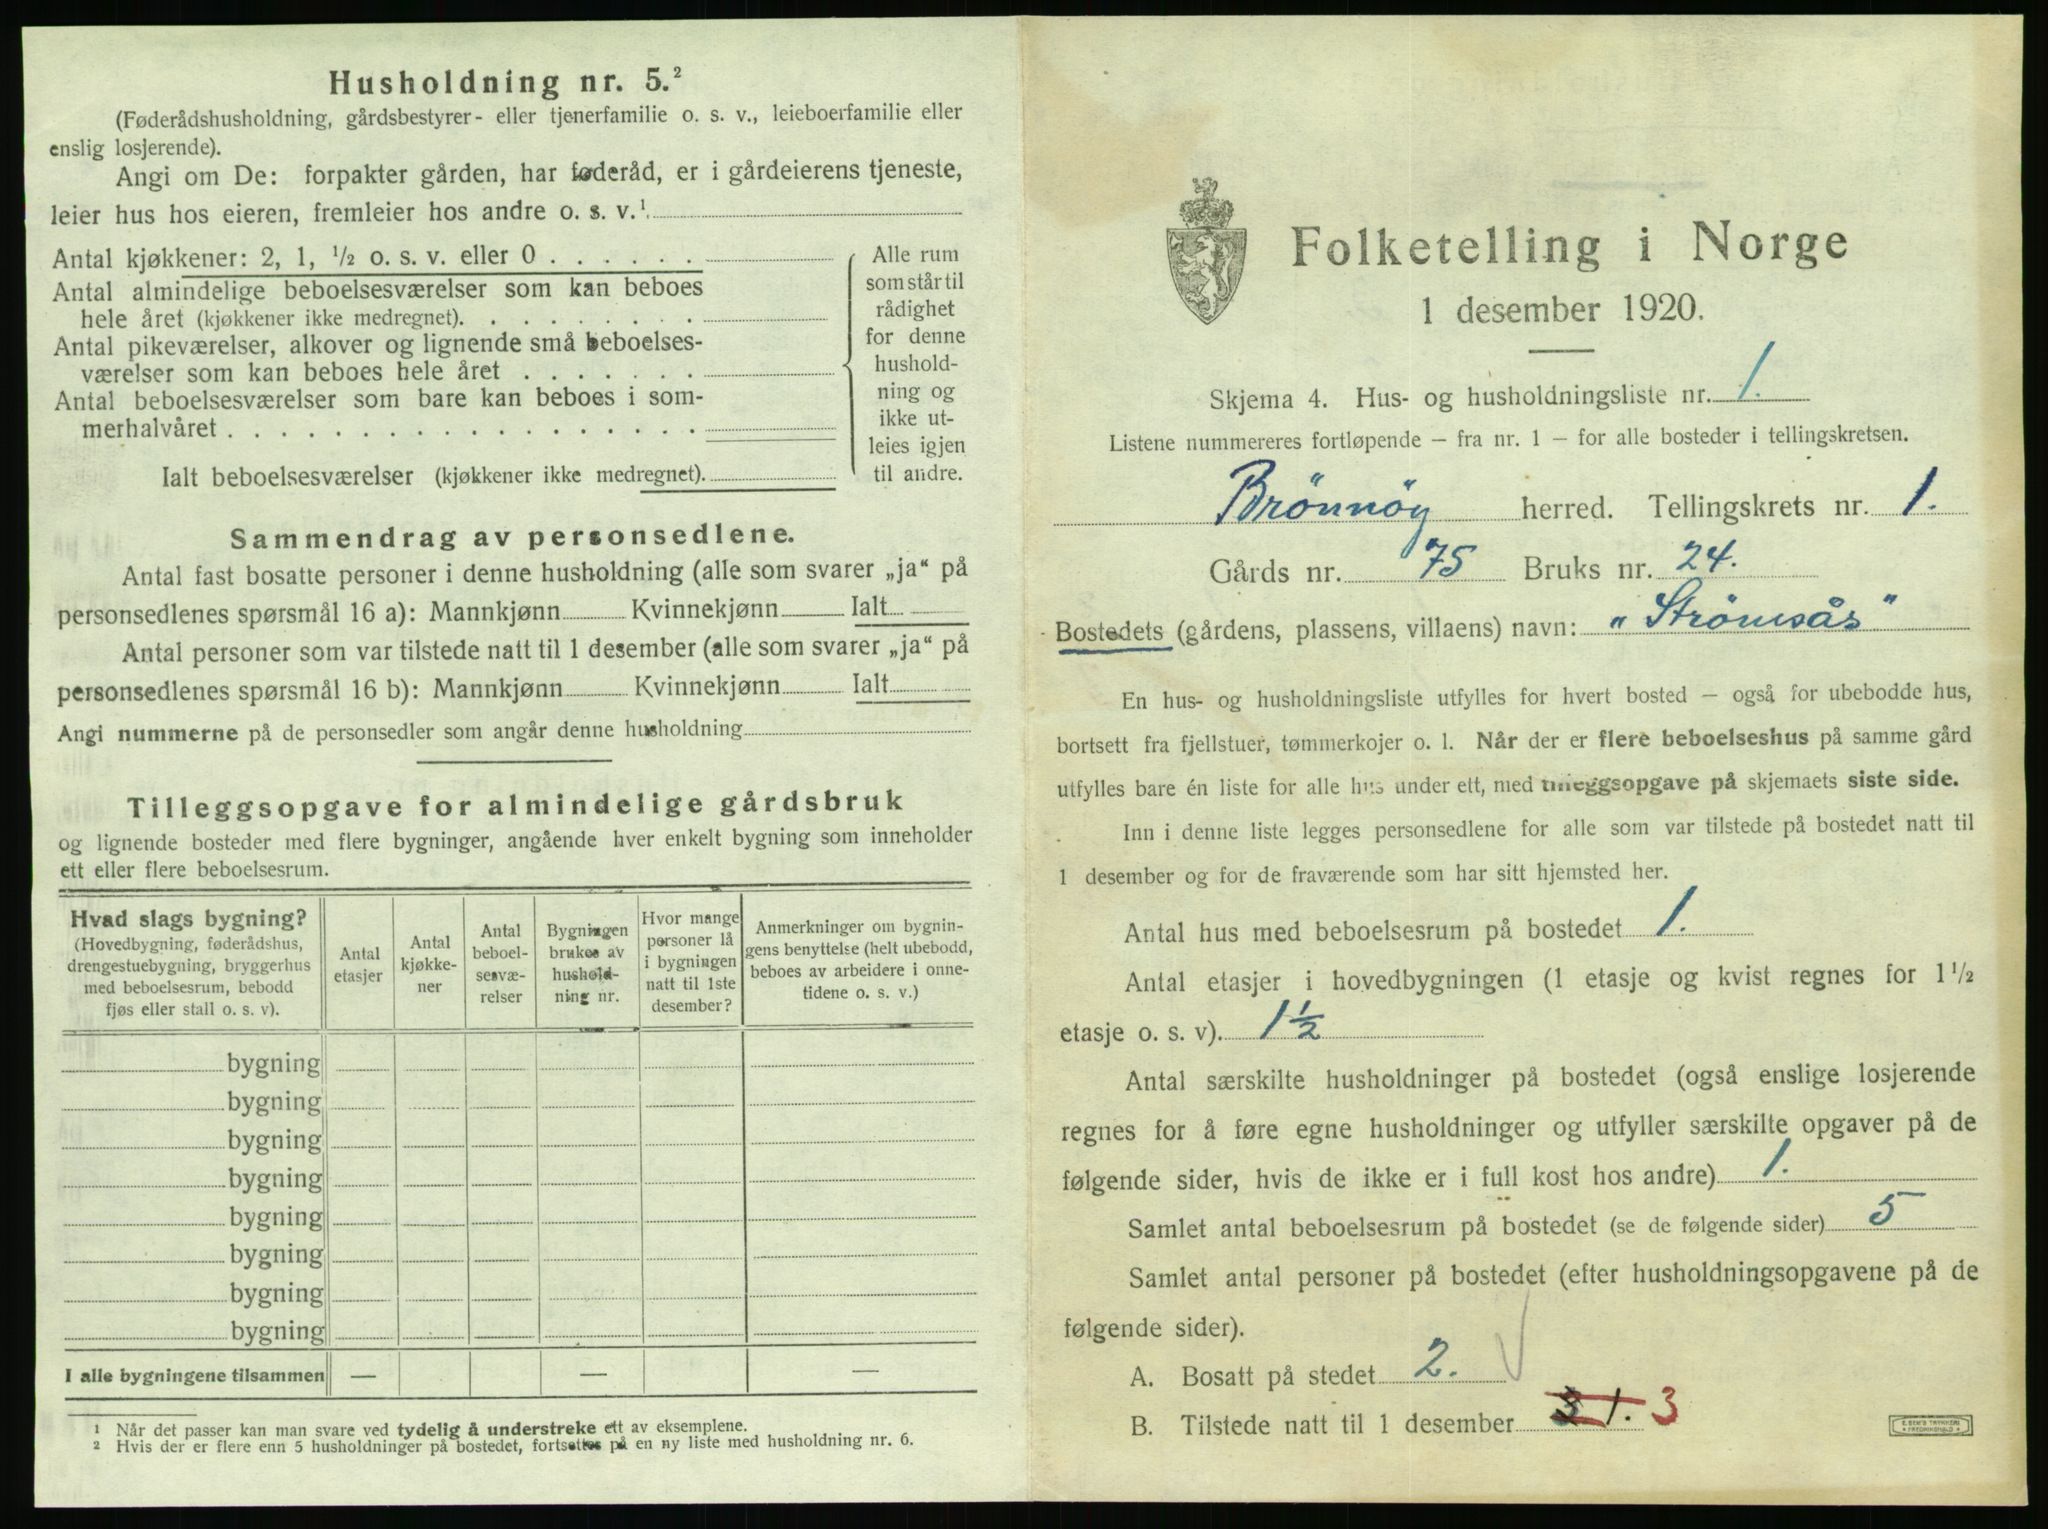 Husholdning nr. 5.²
(Føderådshusholdning, gårdsbestyrer- eller tjenerfamilie o. s. v., leieboerfamilie eller
enslig losjerende).
Angi om De: forpakter gården, har føderåd, er i gårdeierens tjeneste,
leier hus hos eieren, fremleier hos andre o. s. v.¹
Antal kjøkkener: 2, 1, ½ o. s. v. eller 0 . . . . . .
Antal almindelige beboelsesværelser som kan beboes
hele året (kjøkkener ikke medregnet). . . . . . . . .
Antal pikeværelser, alkover og lignende små beboelses-
værelser som kan beboes hele året . . . . . . .
Antal beboelsesværelser som bare kan beboes i som-
merhalvåret . . . . . . . . . . . . . . . . . .
Ialt beboelsesværelser (kjøkkener ikke medregnet).
Alle rum
som står til
rådighet
for denne
hushold-
ning og
ikke ut-
leies igjen
til andre.
Sammendrag av personsedlene.
Antal fast bosatte personer i denne husholdning (alle som svarer „ja“ på
personsedlenes spørsmål 16 a): Mannkjønn Kvinnekjønn Ialt
Antal personer som var tilstede natt til 1 desember (alle som svarer „ja“ på
personsedlenes spørsmål 16 b): Mannkjønn Kvinnekjønn Ialt
Angi nummerne på de personsedler som angår denne husholdning
Tilleggsopgave for almindelige gårdsbruk
og lignende bosteder med flere bygninger, angående hver enkelt bygning som inneholder
ett eller flere beboelsesrum.
Hvad slags bygning?
(Hovedbygning, føderådshus,
drengestuebygning, bryggerhus
med beboelsesrum, bebodd
fjøs eller stall o. s. v).
Antal
etasjer
Antal
kjøkke-
ner
Antal
beboel-
sesvæ-
relser
Bygningen
brukes av
hushold-
ning nr.
Hvor mange
personer lå
i bygningen
natt til 1ste
desember?
Anmerkninger om bygnin-
gens benyttelse (helt ubebodd,
beboes av arbeidere i onne-
tidene o. s. v.)
bygning
bygning
bygning
bygning
bygning
bygning
bygning
bygning
I alle bygningene tilsammen — — —
¹ Når det passer kan man svare ved tydelig å understreke ett av eksemplene.
² Hvis der er flere enn 5 husholdninger på bostedet, fortsettes på en ny liste med husholdning nr. 6.
Folketelling i Norge
1 desember 1920.
Skjema 4. Hus- og husholdningsliste nr. 1.
Listene nummereres fortløpende – fra nr. 1 – for alle bosteder i tellingskretsen.
Brönnöy herred. Tellingskrets nr. 1.
Gårds nr. 75 Bruks nr. 24.
Bostedets (gårdens, plassens, villaens) navn: „Strömsås"
En hus- og husholdningsliste utfylles for hvert bosted – også for ubebodde hus,
bortsett fra fjellstuer, tømmerkojer o. l. Når der er flere beboelseshus på samme gård
utfylles bare én liste for alle hus under ett, med tilleggsopgave på skjemaets siste side.
Inn i denne liste legges personsedlene for alle som var tilstede på bostedet natt til
1 desember og for de fraværende som har sitt hjemsted her.
Antal hus med beboelsesrum på bostedet 1.
Antal etasjer i hovedbygningen (1 etasje og kvist regnes for 1½
etasje o. s. v). 1½
Antal særskilte husholdninger på bostedet (også enslige losjerende
regnes for å føre egne husholdninger og utfyller særskilte opgaver på de
følgende sider, hvis de ikke er i full kost hos andre) 1.
Samlet antal beboelsesrum på bostedet (se de følgende sider) 5
Samlet antal personer på bostedet (efter husholdningsopgavene på de
følgende sider).
A. Bosatt på stedet 2.
B. Tilstede natt til 1 desember 3 1. 3